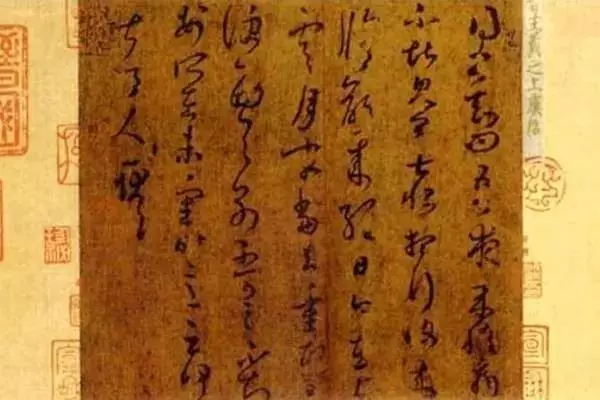 王羲之上虞帖
得書知問吾夜來腹痛
不堪見卿甚恨想行復來
脩齡來經日今在上
虞月末當去重熙旦
便西與別不可言不知
安所在未審時意云何
甚令人耿耿